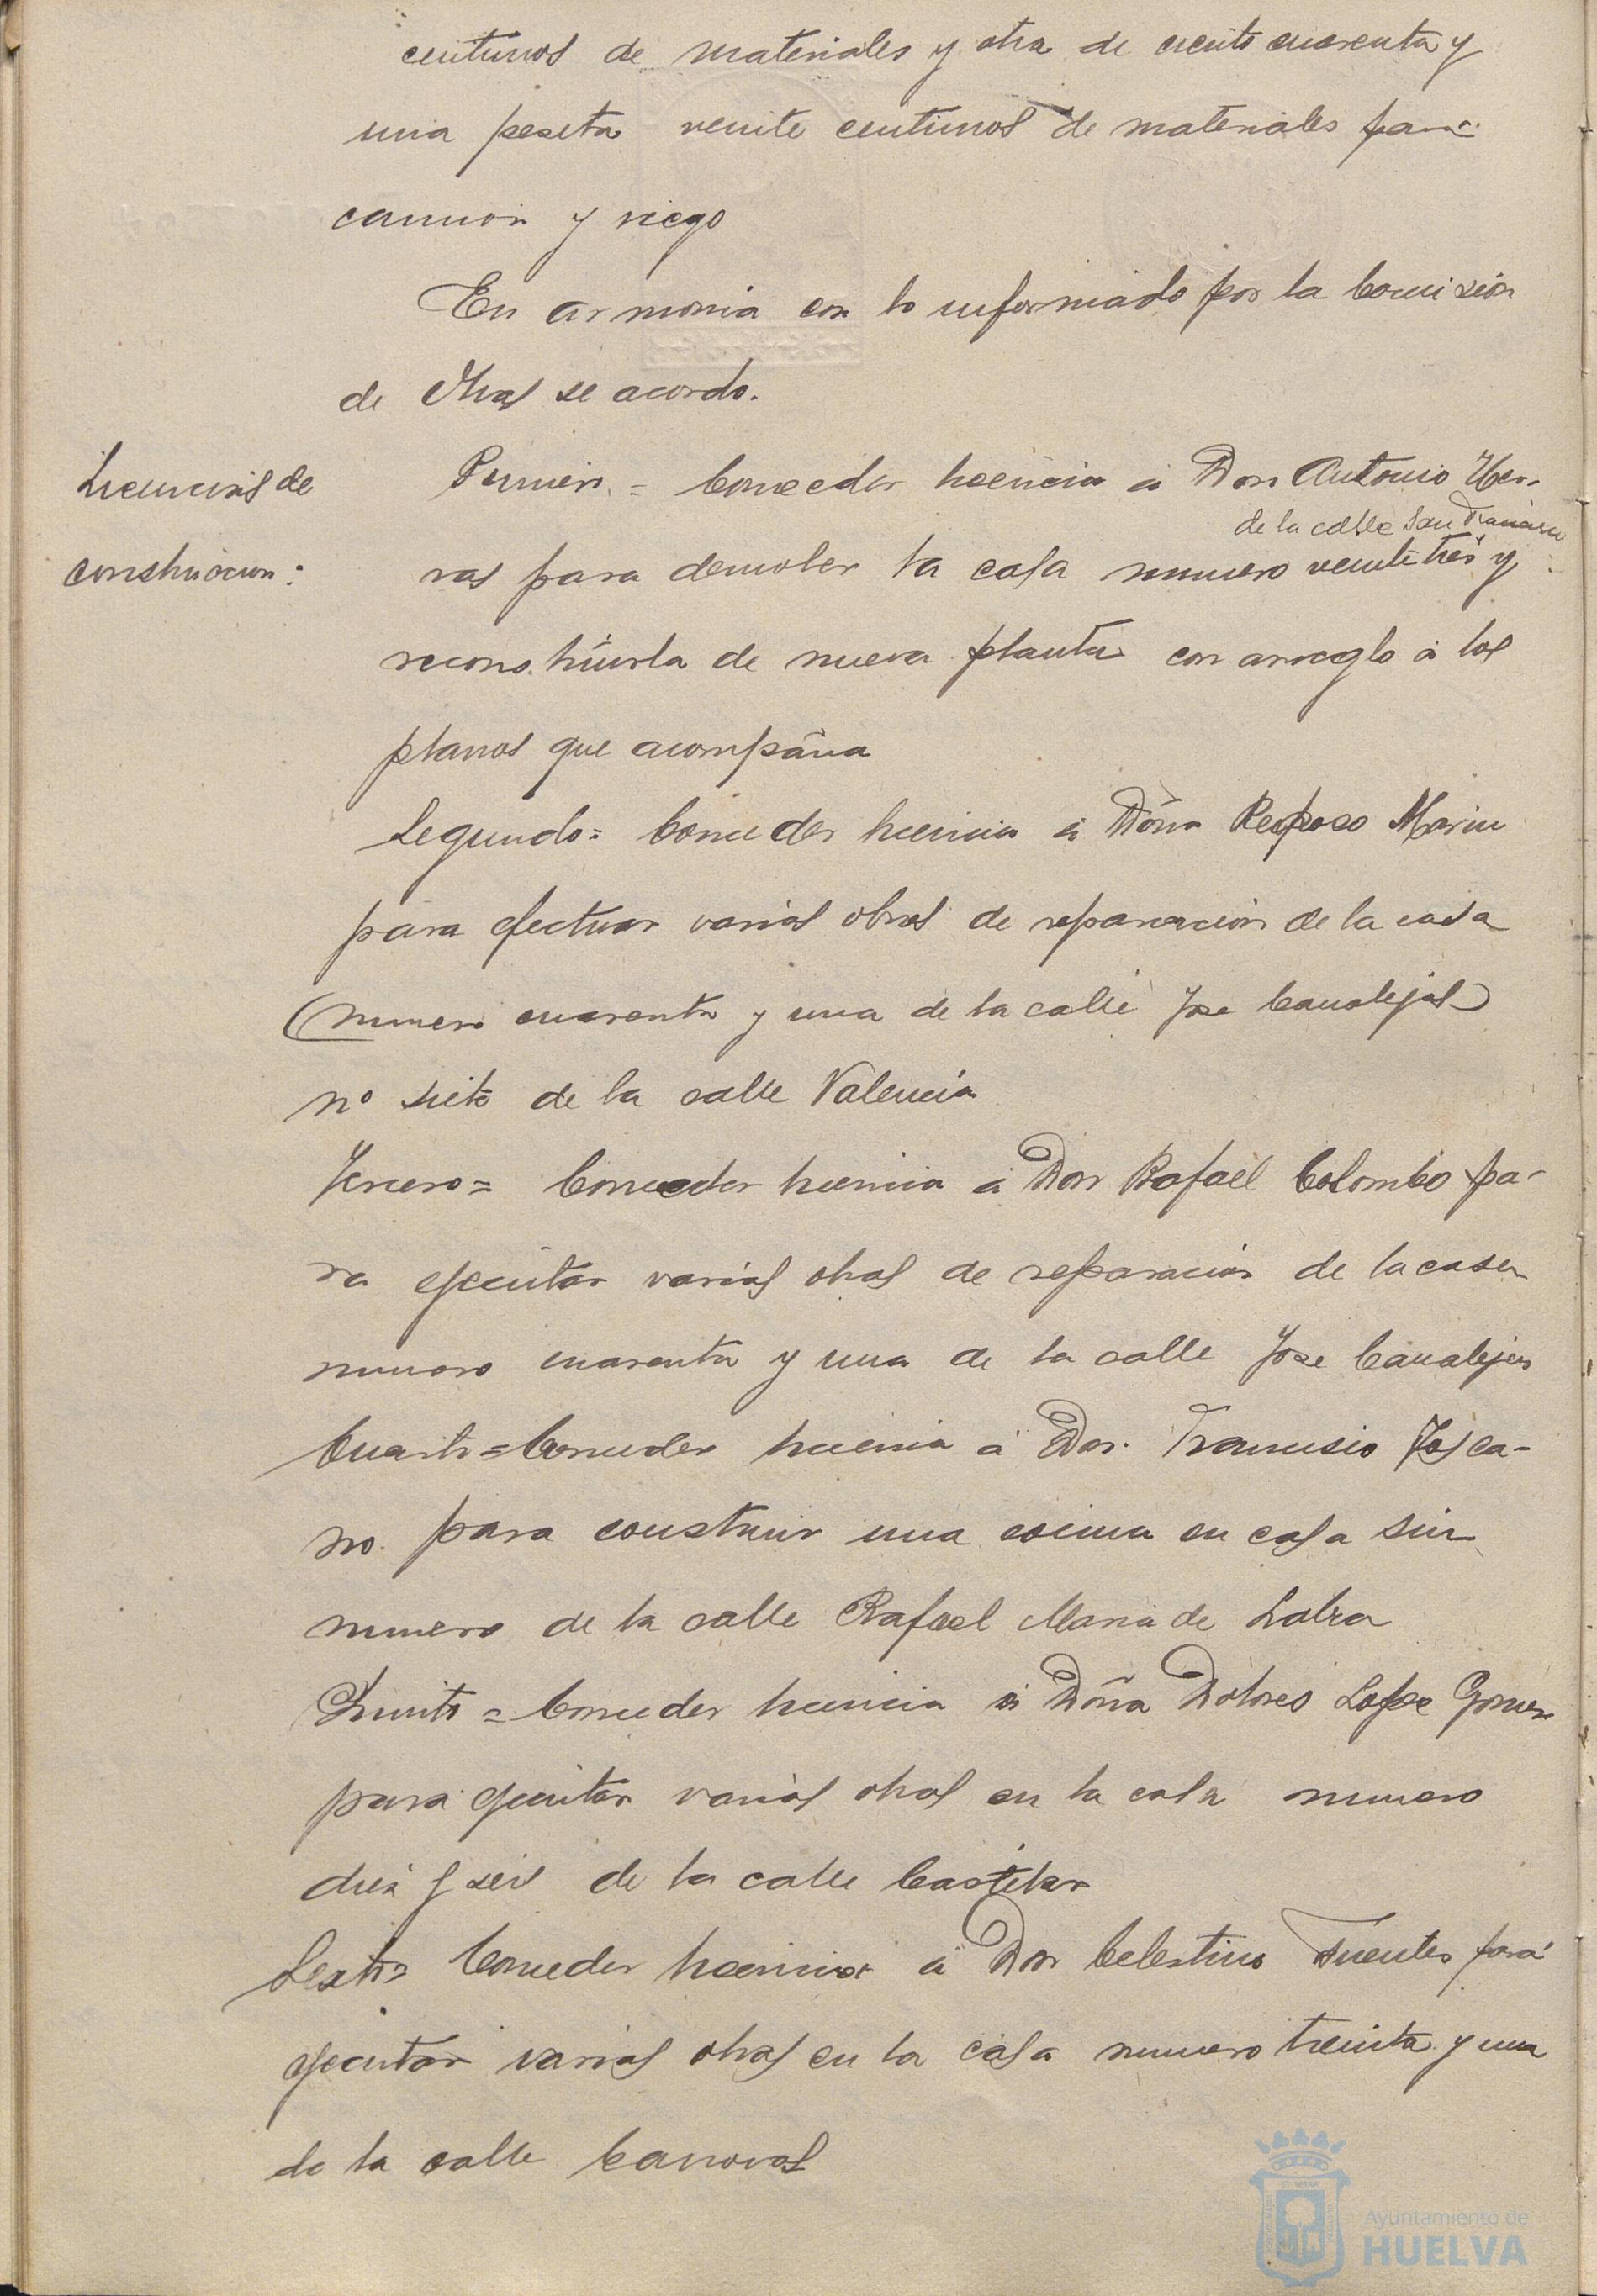 centimos de materiales y otra de ciento cuarenta y
una peseta veinte centimos de materiales para
camion y riego
En armonia con lo informado por la Comisión
de Obras se acordo.
Licencias de
construccion:
Primero = Conceder licencia á Don Antonio Her-
de la calle San Francisco
ras para demoler la casa numero veintitres y
reconstruirla de nueva planta con arreglo á los
planos que acompaña
Segundo = Conceder licencia á Doña Reposo Marin
para efectuar varias obras de reparación de la casa
(numero cuarenta y una de la calle Jose Canalejas)
nº siete de la calle Valencia
Tercero = Conceder licencia á Don Rafael Colombo pa-
ra ejecutar varias obras de reparación de la casa
numero cuarenta y una de la calle Jose Canalejas
Cuarto = Conceder licencia á Don Francisco Tosca-
no para construir una cocina en casa sin
numero de la calle Rafael Maria de Labra
Quinto = Conceder licencia á Doña Dolores Lopez Gomez
para ejecutar varias obras en la casa numero
diez y seis de la calle Castelar
Sexto = Conceder licencia á Don Celestino Fuentes para
ejecutar varias obras en la casa numero treinta y una
de la calle Canovas
Ayuntamiento de
HUELVA